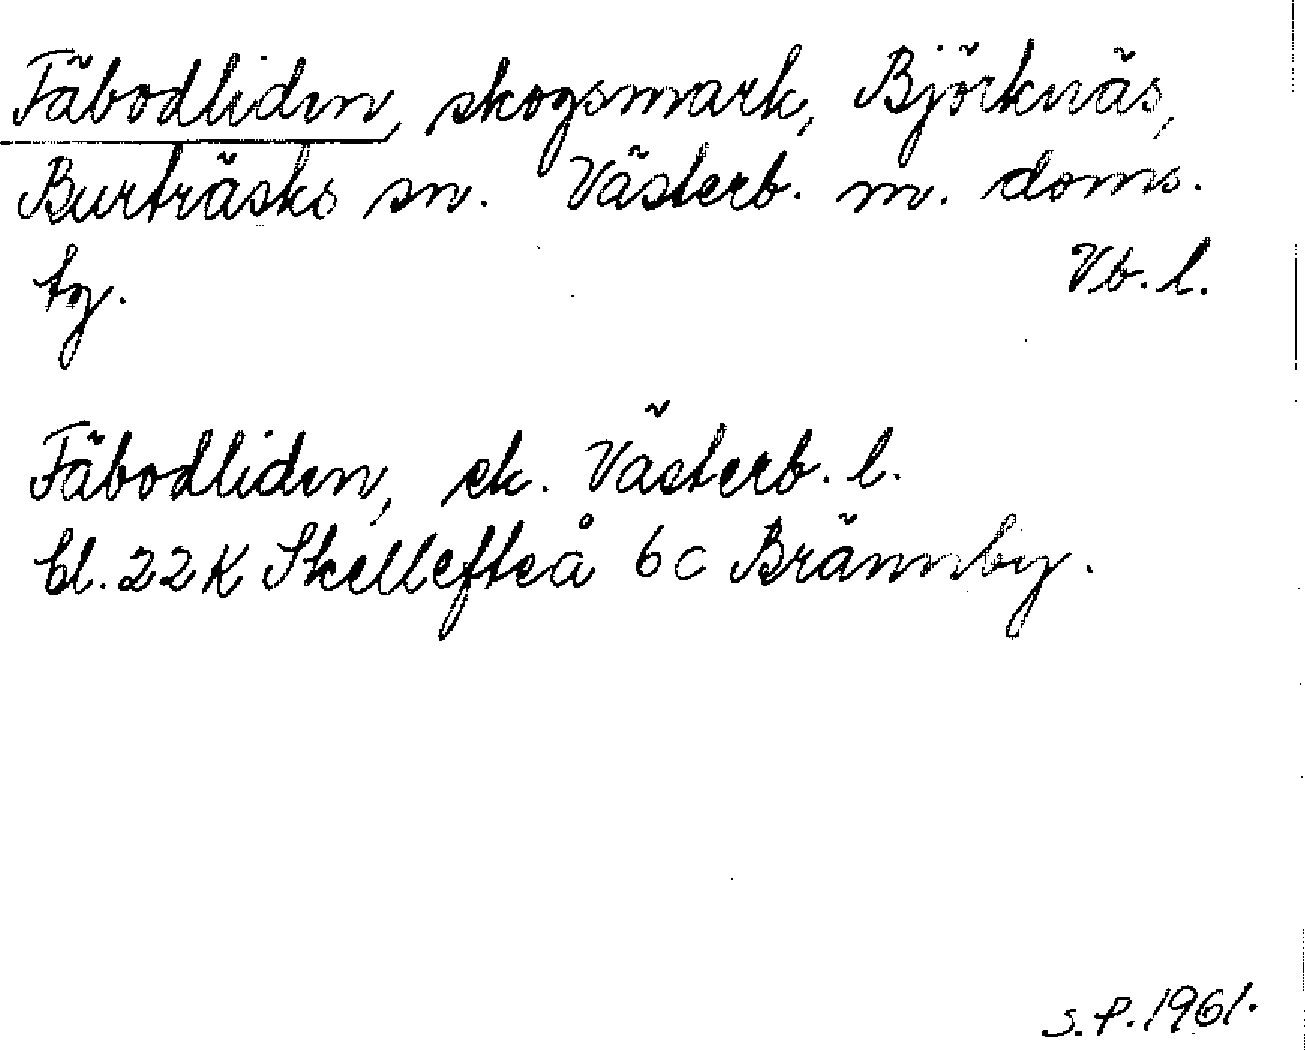 Fäbodliden, skogsmark, Björknäs,
Burträsks sn. Västerb. m. doms.
tg. Vb. l.
Fäbodliden, sk. Västerb. l.
bl. 22K Skellefteå 6c Brännby.
S.P. 1961.